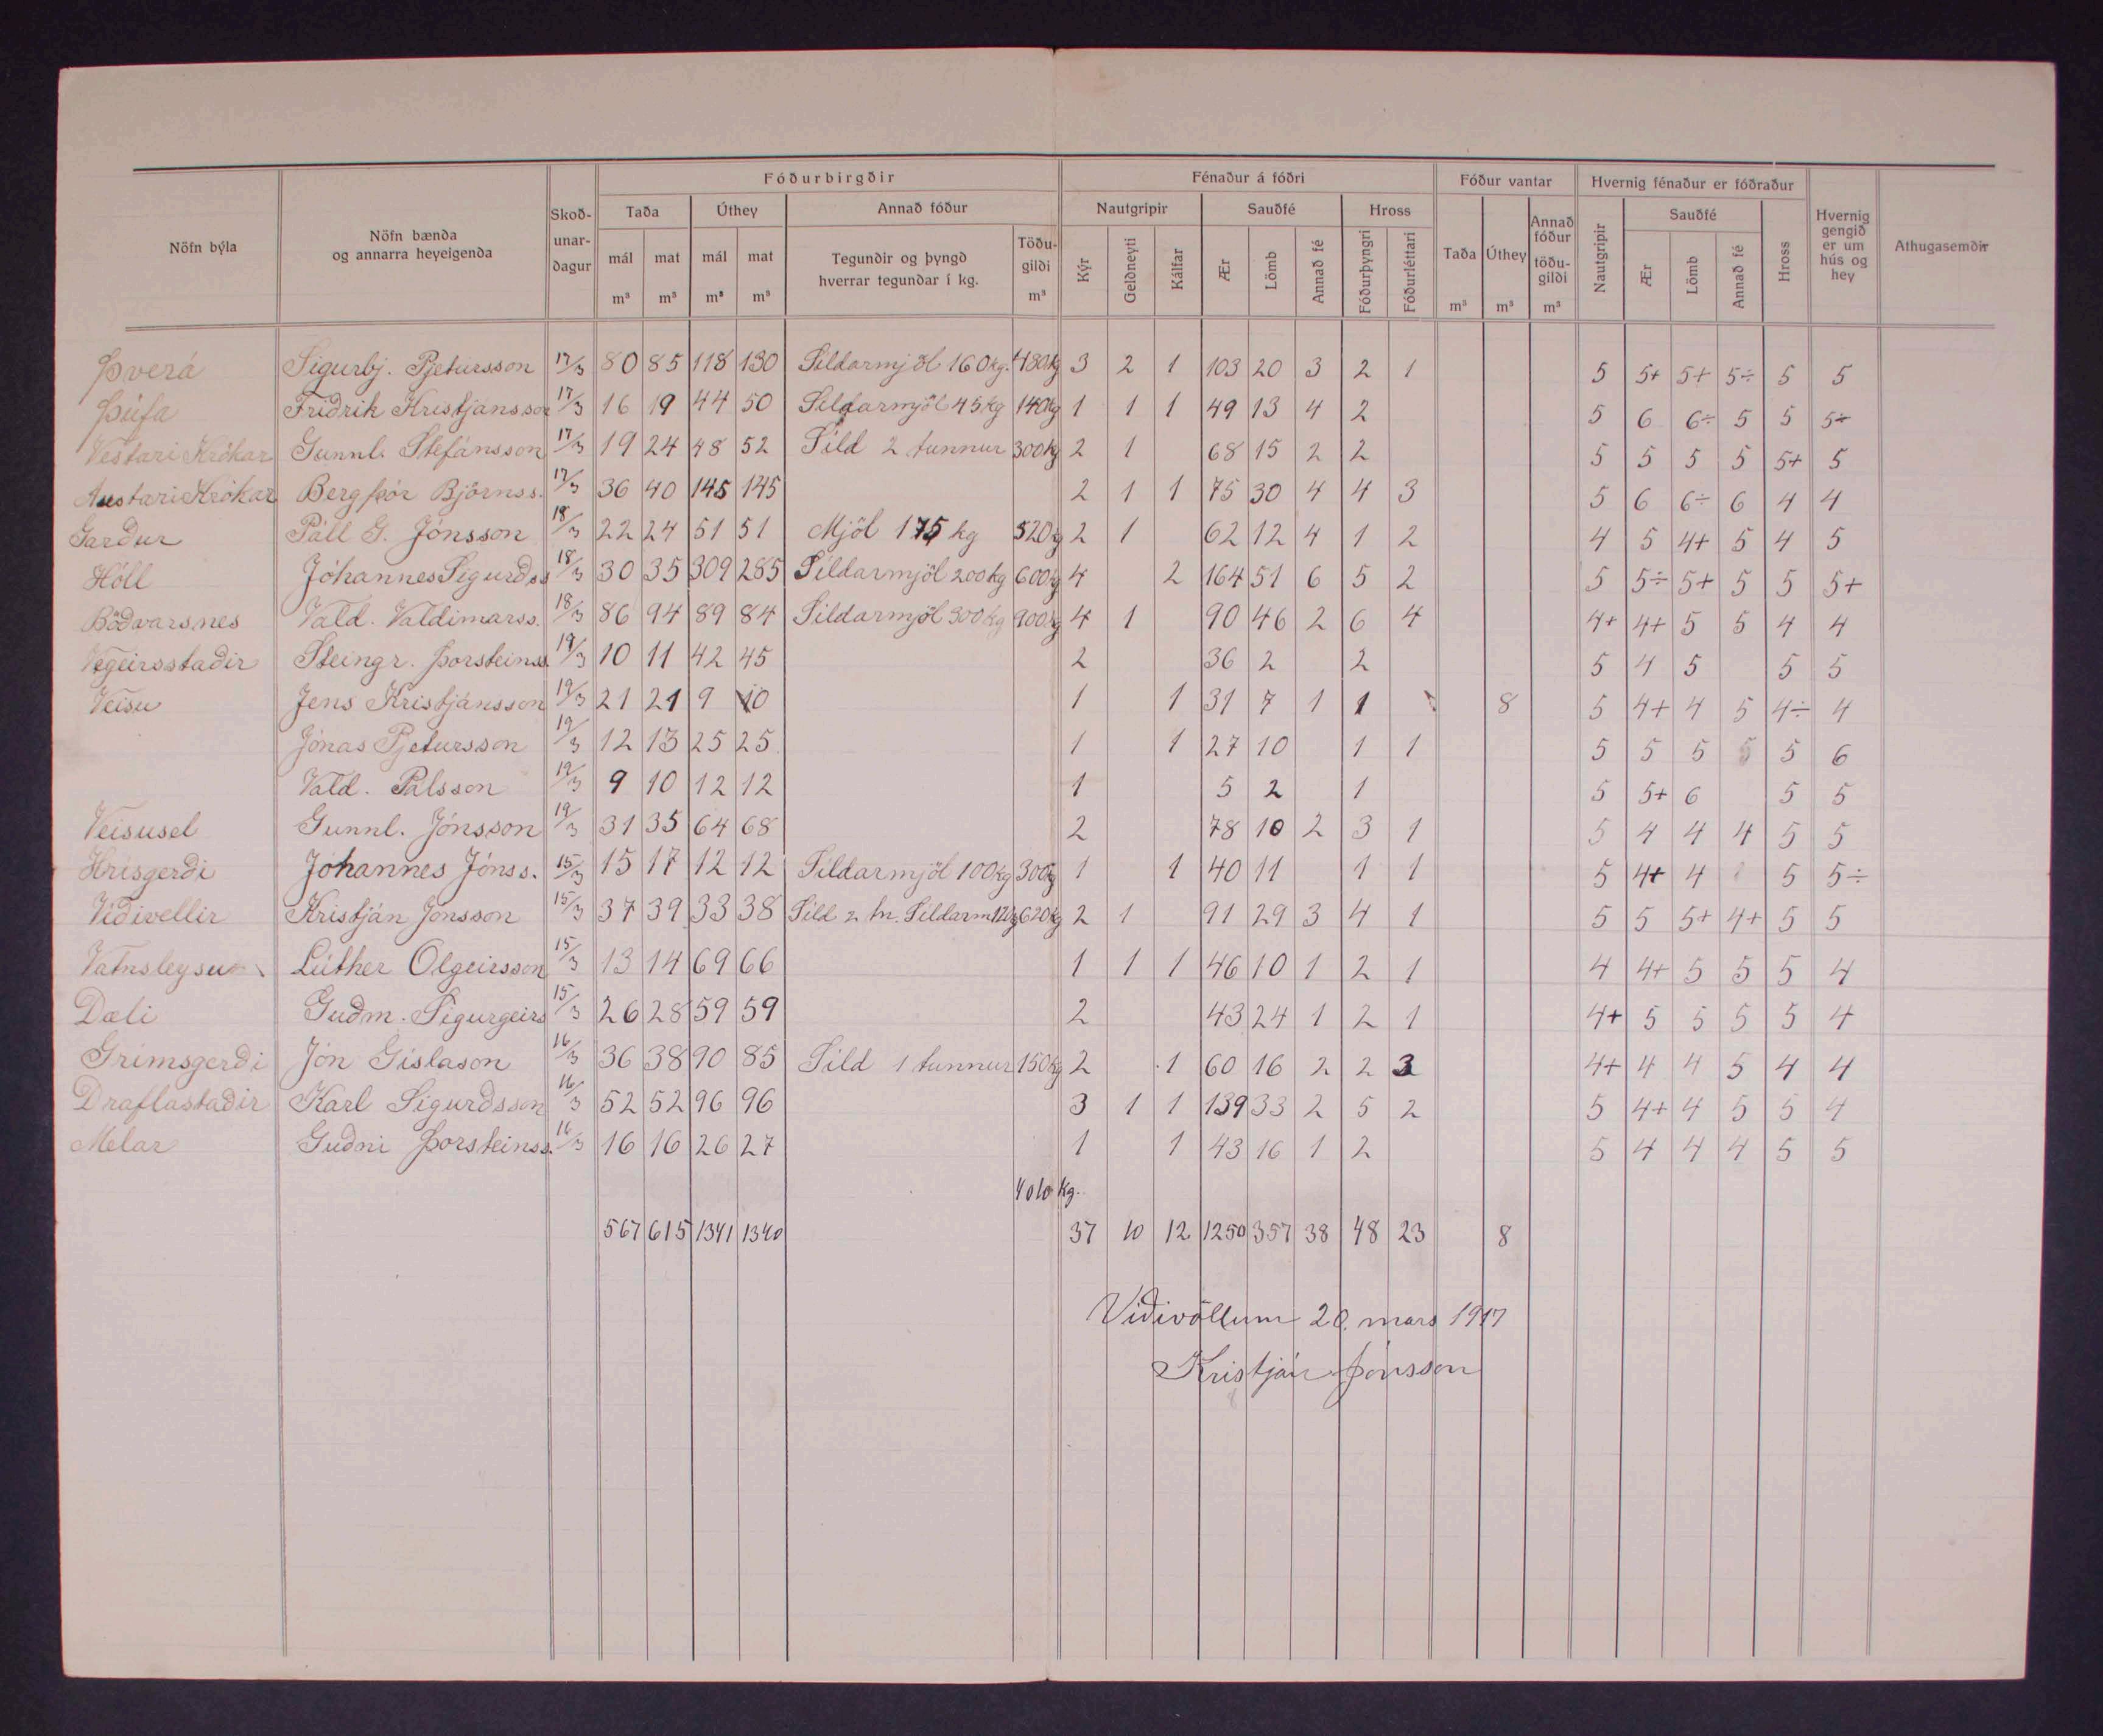 Fóðurbirgðir Fénaður á fóðri Fóður vantar Hvernig fénaður er fóðraður
Nöfn býla Nöfn bænda og annarra heyeigenda Skoð-unar-dagur Taða Úthey Annað fóður Nautgripir Sauðfé Hross Taða Úthey Annað fóður töðu-gildi Nautgripir Sauðfé Hross Hvernig gengið er um hús og hey Athugasemdir
mál mat mál mat Tegundir og þyngd hverrar tegundar í kg. Töðu-gildi Kýr Geldneyti Kálfar Ær Lömb Annað fé Fóðurþyngri Fóðurléttari Ær Lömb Annað fé
m³ m³ m³ m³ m³ m³ m³ m³
Þverá Sigurbj. Pjetursson 17/3 80 85 118 130 Síldarmjöl 160 kg. 480 kg 3 2 1 103 20 3 2 1 5 5+ 5+ 5÷ 5 5
Þúfa Friðrik Kristjánsson 17/3 16 19 44 50 Síldarmjöl 45 kg 140 kg 1 1 1 49 13 4 2 5 6 6÷ 5 5 5÷
Vestari Krókar Gunnl. Stefánsson 17/3 19 24 48 52 Síld 2 tunnur 300 kg 2 1 68 15 2 2 5 5 5 5 5+ 5
Austari Krókar Bergþór Björnss. 17/3 36 40 145 145 2 1 1 75 30 4 4 3 5 6 6÷ 6 4 4
Garður Páll G. Jónsson 18/3 22 24 51 51 Mjöl 175 kg 520 kg 2 1 62 12 4 1 2 4 5 4+ 5 4 5
Hóll Jóhannes Sigurðss 18/3 30 35 309 285 Síldarmjöl 200 kg 600 kg 4 2 164 51 6 5 2 5 5÷ 5+ 5 5 5+
Böðvarsnes Vald. Valdimarss. 18/3 86 94 89 84 Síldarmjöl 300 kg 900 kg 4 1 90 46 2 6 4 4+ 4+ 5 5 4 4
Végeirsstaðir Steingr. Þorsteinss. 19/3 10 11 42 45 2 36 2 2 5 4 5 5 5
Veisu Jens Kristjánsson 19/3 21 21 9 10 1 1 31 7 1 1 8 5 4+ 4 5 4÷ 4
Jónas Pjetursson 19/3 12 13 25 25 1 1 27 10 1 1 5 5 5 5 6
Vald. Pálsson 19/3 9 10 12 12 1 5 2 1 5 5+ 6 5 5
Veisusel Gunnl. Jónsson 19/3 31 35 64 68 2 78 10 2 3 1 5 4 4 4 5 5
Hrísgerði Jóhannes Jónss. 15/3 15 17 12 12 Síldarmjöl 100 kg 300 kg 1 1 40 11 1 1 5 4+ 4 5 5÷
Víðivellir Kristján Jónsson 15/3 37 39 33 38 Síld 2 tn. Síldarm 120 kg 620 kg 2 1 91 29 3 4 1 5 5 5+ 4+ 5 5
Vatnsleysu Lúther Olgeirsson 15/3 13 14 69 66 1 1 1 46 10 1 2 1 4 4+ 5 5 5 4
Dæli Guðm. Sigurgeirs 15/3 26 28 59 59 2 43 24 1 2 1 4+ 5 5 5 5 4
Grímsgerði Jón Gíslason 16/3 36 38 90 85 Síld 1 tunnur 150 kg 2 1 60 16 2 2 3 4+ 4 4 5 4 4
Draflastaðir Karl Sigurðsson 16/3 52 52 96 96 3 1 1 139 33 2 5 2 5 4+ 4 5 5 4
Melar Guðni Þorsteinss. 16/3 16 16 26 27 1 1 43 16 1 2 5 4 4 4 5 5
4010 kg.
567 615 1341 1340 37 10 12 1250 357 38 48 23 8
Víðivöllum 20. mars 1917
Kristján Jónsson